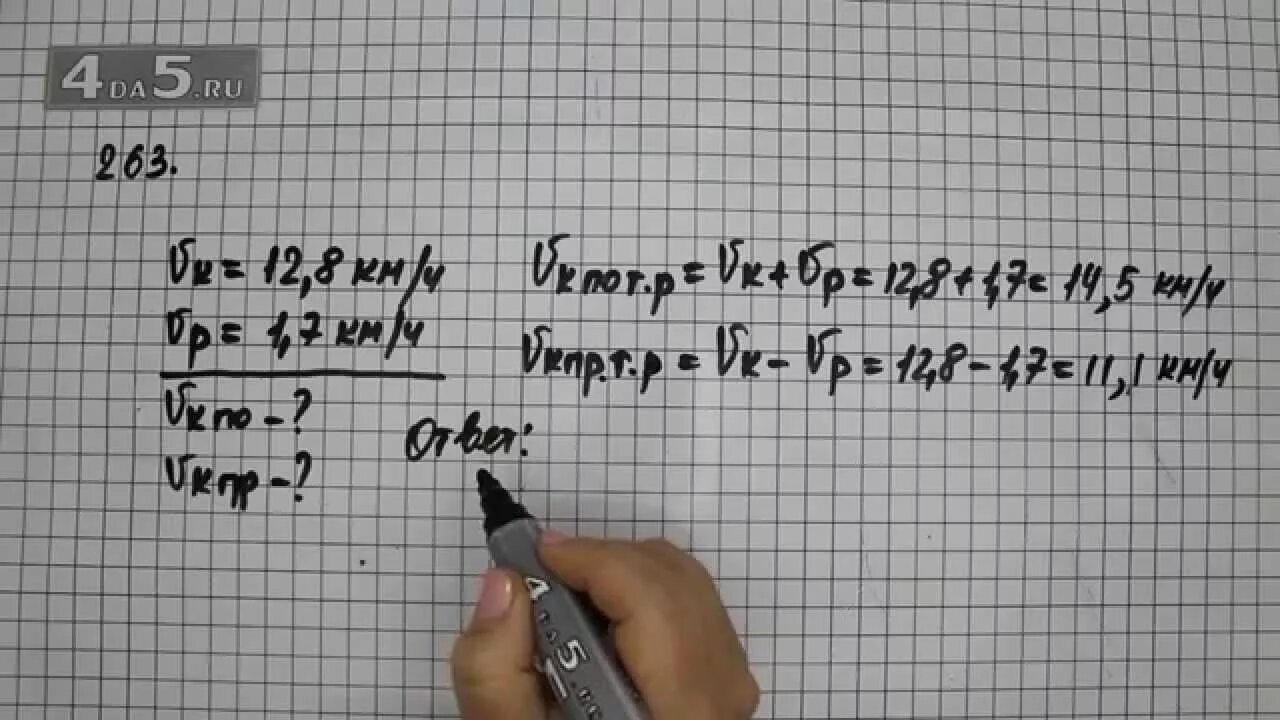 4DA5.RU
263.
Vк = 12,8 км/ч
Vр = 1,7 км/ч
Vк по - ?
Vк пр - ?
Vк по т.р = Vк + Vр = 12,8 + 1,7 = 14,5 км/ч
Vк пр.т.р = Vк - Vр = 12,8 - 1,7 = 11,1 км/ч
Ответ:
4DA5.RU